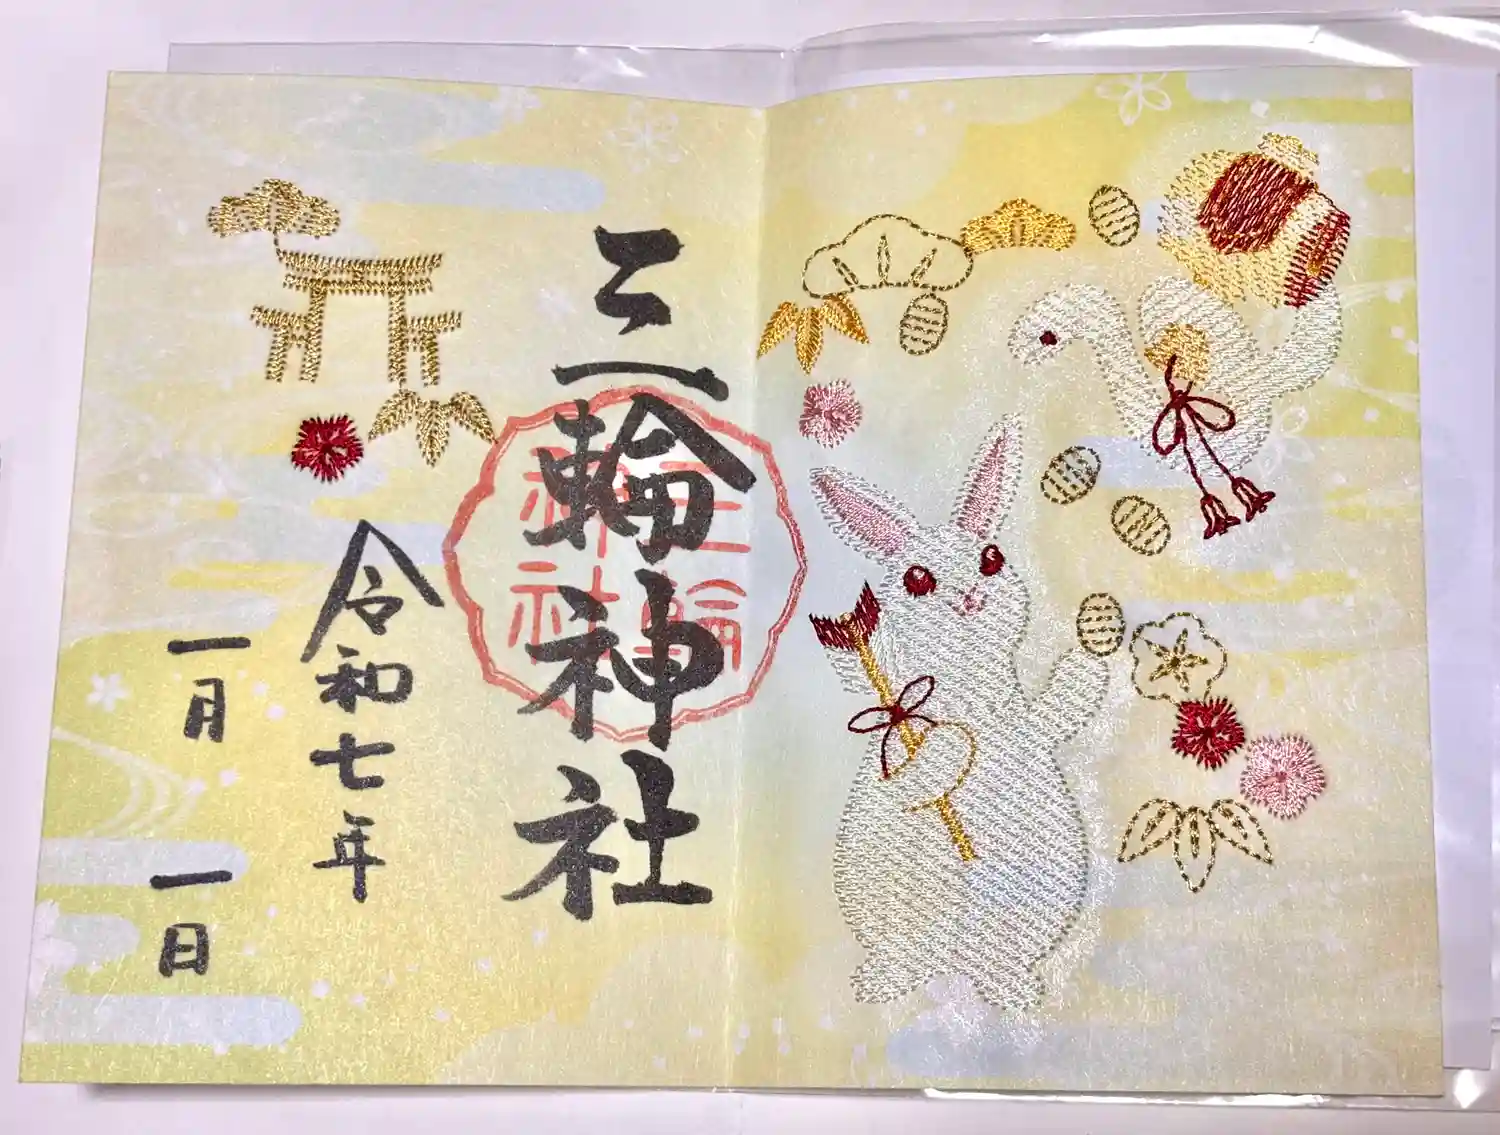 三輪神社
三輪
神社
令和七年
一月
一日